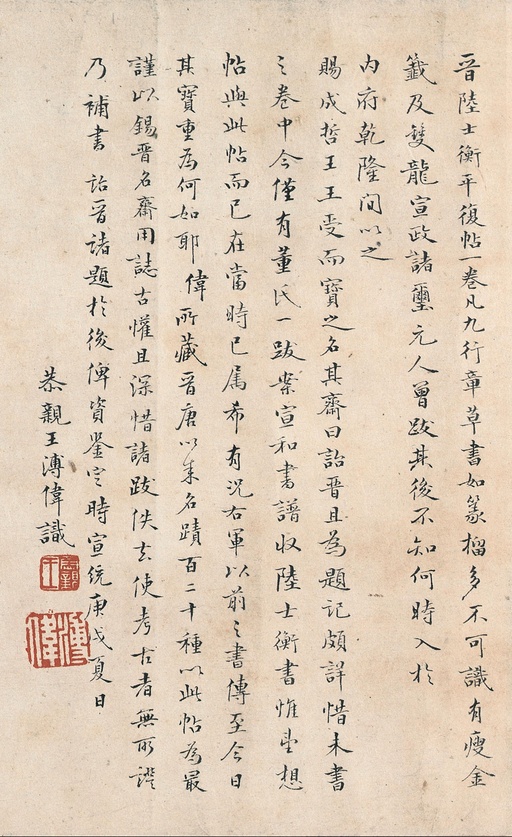 晉陸士衡平復帖一卷凡九行章草書如篆籀多不可識有瘦金
籤及雙龍宣政諸璽元人曾跋其後不知何時入於
內府乾隆間以之
賜成哲王王受而寶之名其齋曰詒晉且為題記頗詳惜未書
之卷中今僅有董氏一跋案宣和書譜收陸士衡書惟此想
帖與此帖而已在當時已屬希有況右軍以前之書傳至今日
其寶重為何如耶偉所藏晉唐以來名蹟百二十種以此帖為最
謹以錫晉名齋用誌古懽且深惜諸跋佚去使考古者無所證
乃補書詒晉諸題於後俾資鑒定時宣統庚戌夏日
恭親王溥偉識
恭親王
溥偉